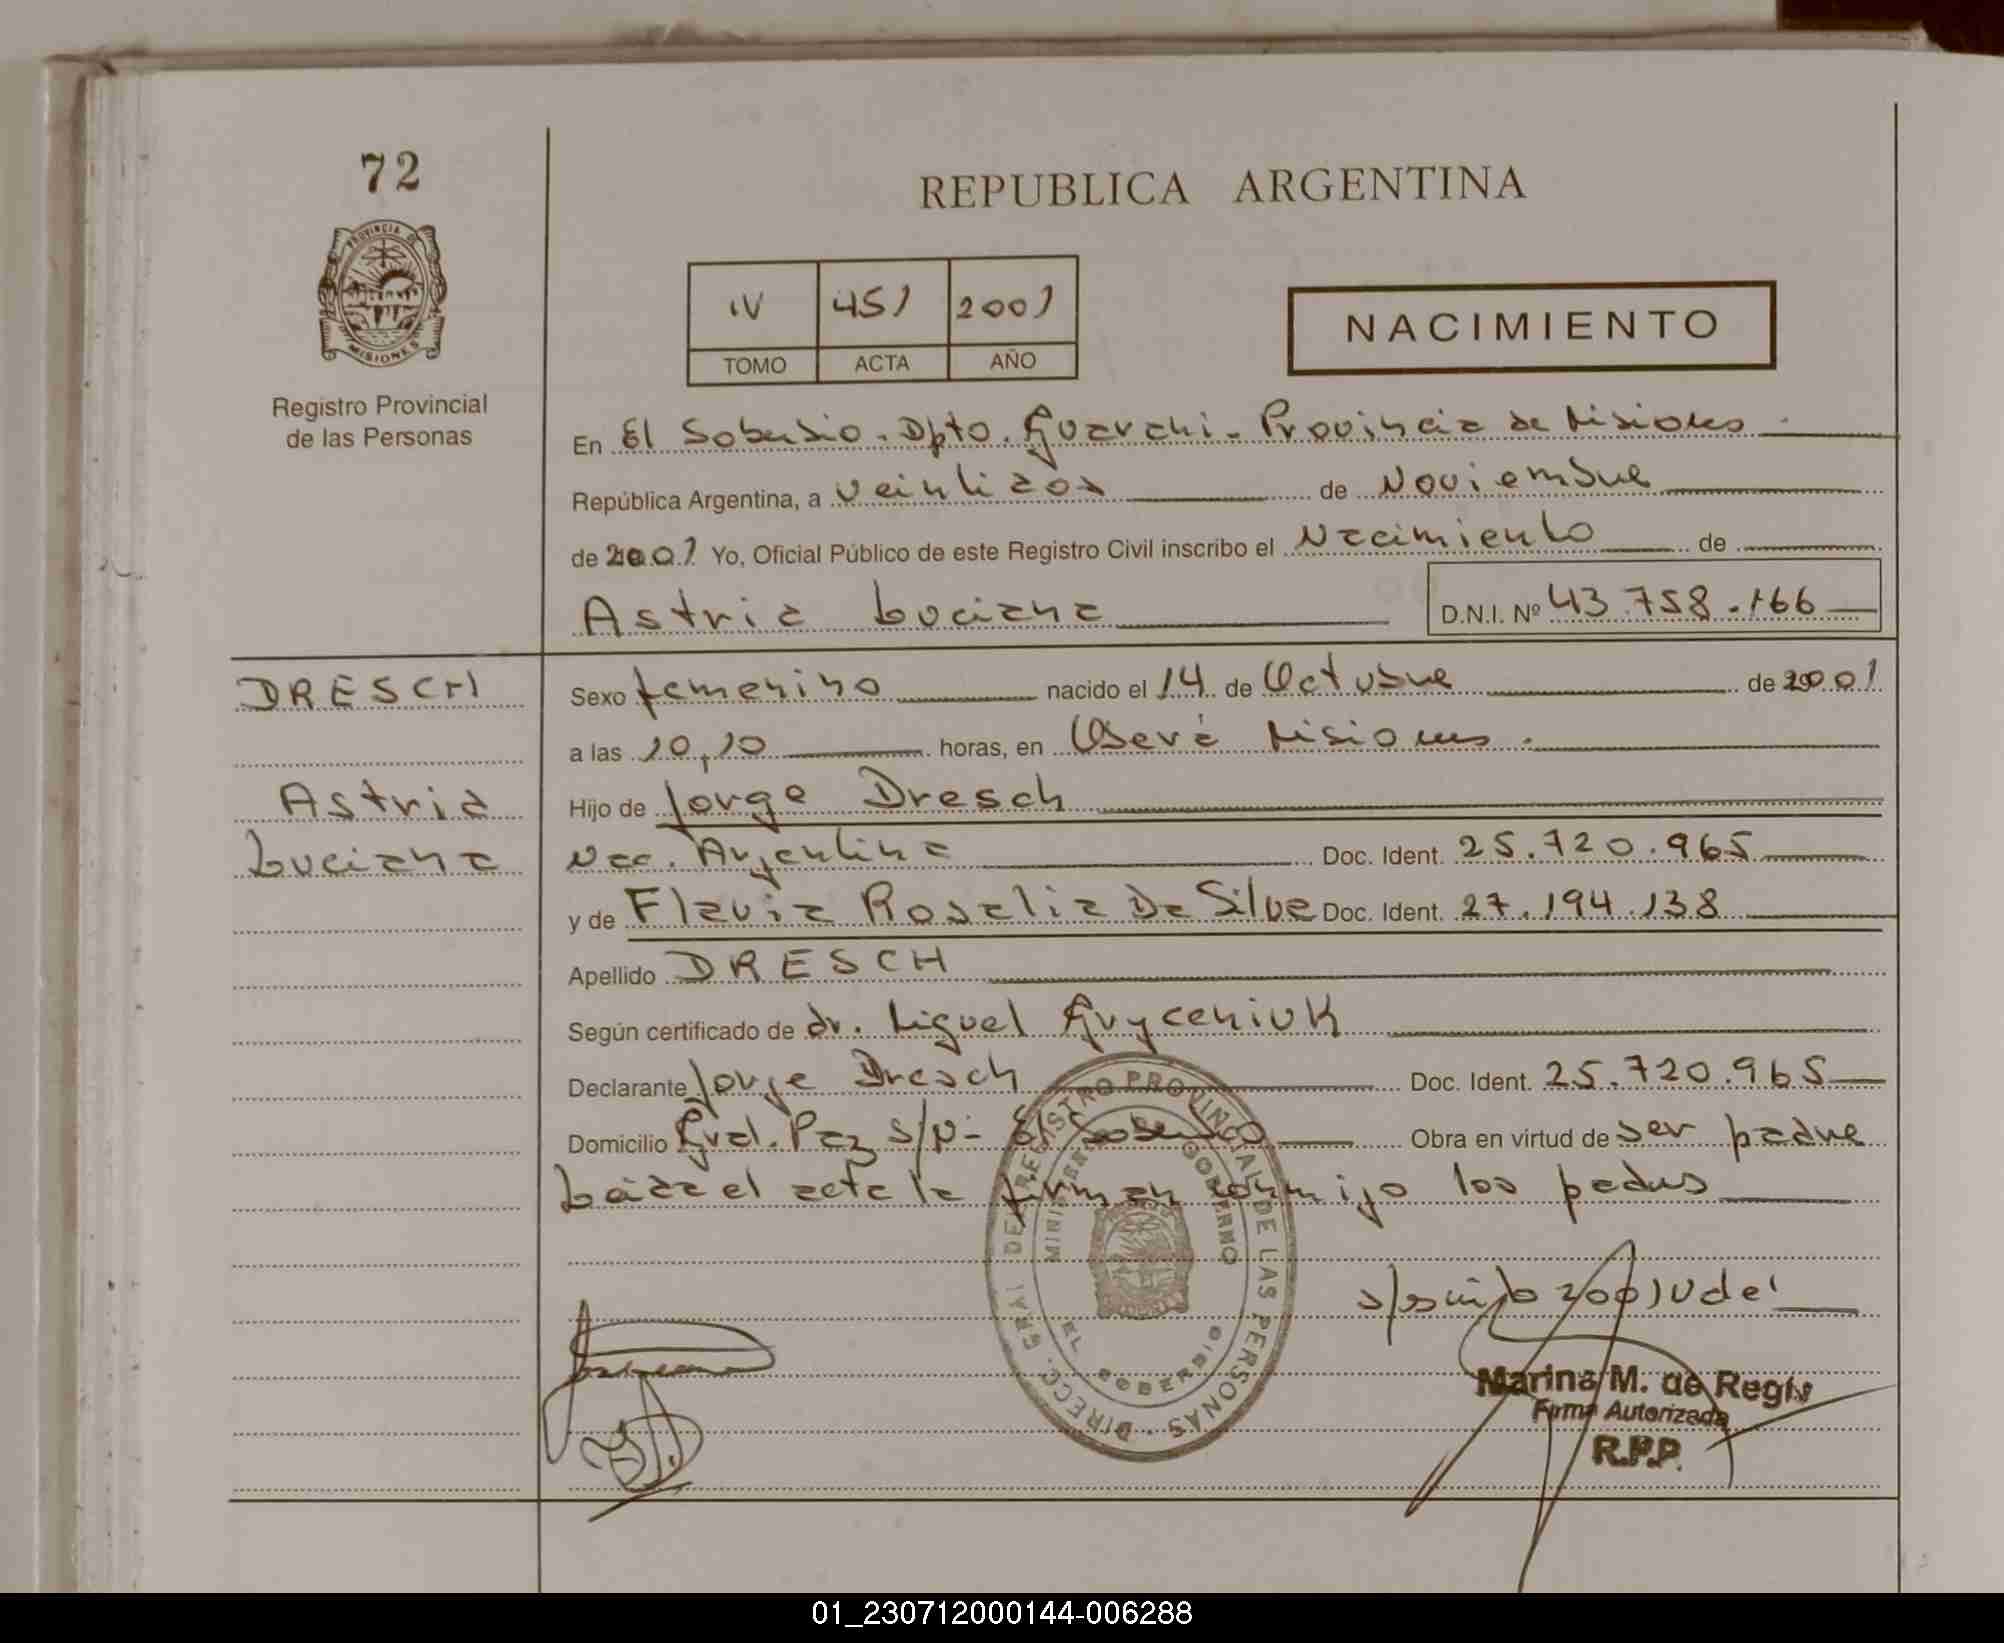 72
REPUBLICA ARGENTINA
PROVINCIA DE
MISIONES
Registro Provincial
de las Personas
IV 451 2001
TOMO ACTA AÑO
NACIMIENTO
En El Soberbio. Dpto. Guarani. Provincia de Misiones
República Argentina, a veintidos de Noviembre
de 2001 Yo, Oficial Público de este Registro Civil inscribo el Nacimiento de
Astrid Luciana D.N.I. Nº 43.758.166
DRESCH
Astrid
Luciana
Sexo femenino nacido el 14 de Octubre de 2001
a las 10,10 horas, en Oberá Misiones.
Hijo de Jorge Dresch
Nac. Argentina Doc. Ident. 25.720.965
y de Flavia Rosalia Da Silva Doc. Ident. 27.194.138
Apellido DRESCH
Según certificado de dr. Miguel Gryceniuk
Declarante Jorge Dresch Doc. Ident. 25.720.965
Domicilio Gral. Paz s/N- El Soberbio Obra en virtud de ser padre
Leida el acta la firman conmigo los padres
2001 Vale
DIRECC. GRAL DEL REGISTRO PROVINCIAL DE LAS PERSONAS
MINISTERIO GOBIERNO
EL SOBERBIO
Marina M. de Regiv
Firma Autorizada
R.P.P.
01_230712000144-006288